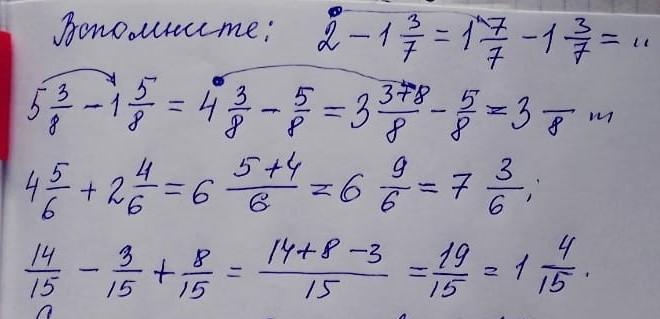 Вспомните: 2 - 1 3/7 = 1 7/7 - 1 3/7 = ..
5 3/8 - 1 5/8 = 4 3/8 - 5/8 = 3 3+8/8 - 5/8 = 3 /8 ...
4 5/6 + 2 4/6 = 6 5+4/6 = 6 9/6 = 7 3/6;
14/15 - 3/15 + 8/15 = 14+8-3/15 = 19/15 = 1 4/15.